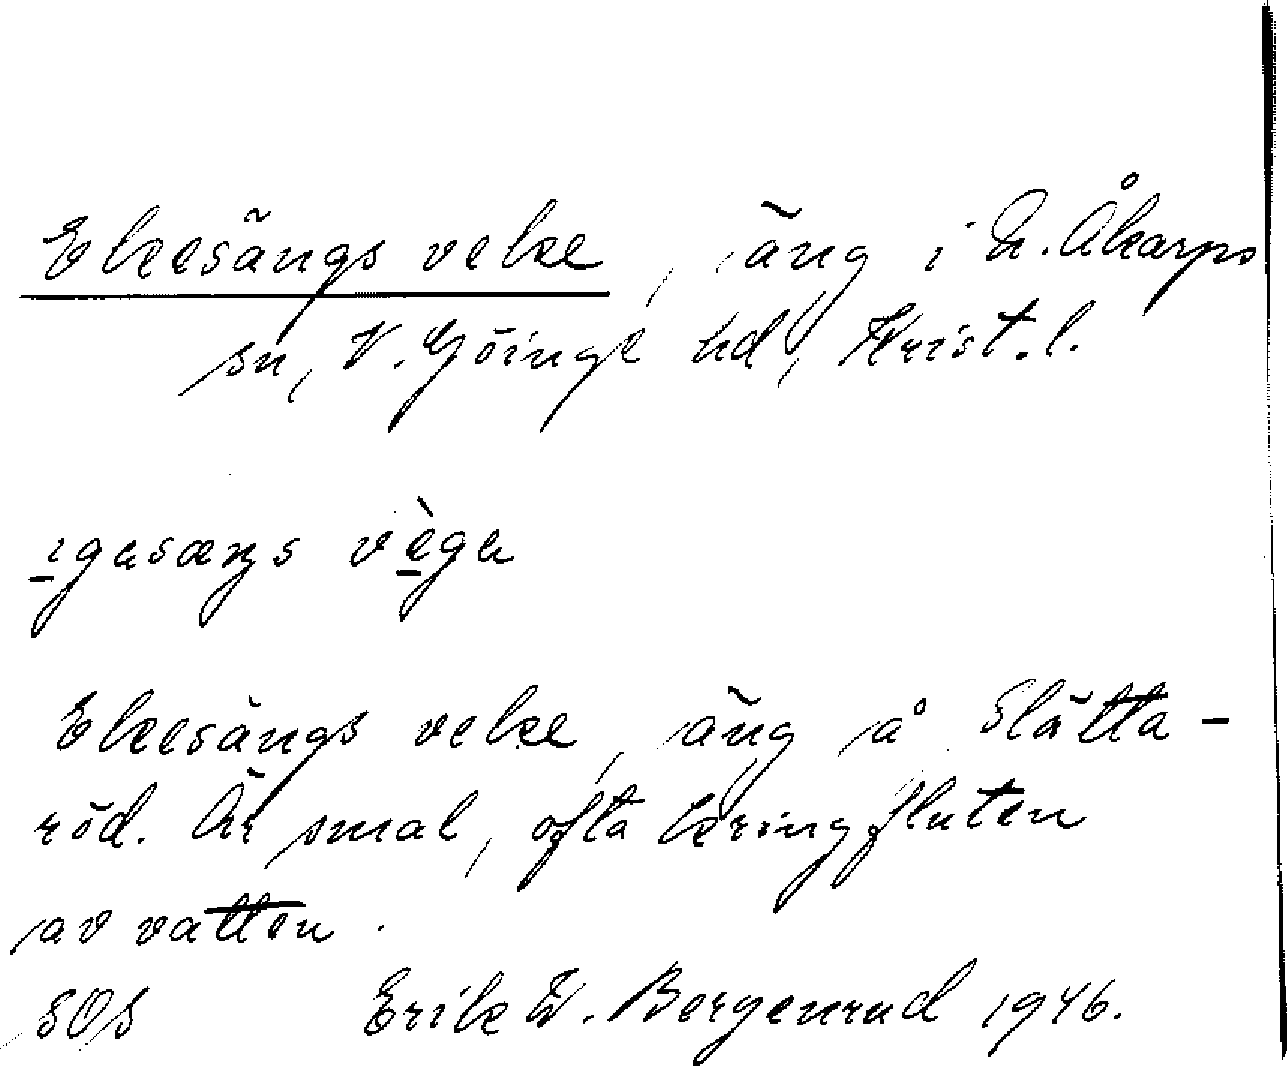 Ekesängs veke, äng i N. Åkarps
sn, V. Göinge hd, Krist. l.
ɩgasæŋs vèga
Ekesängs veke, äng å Slätta-
röd. Är smal, ofta kringfluten
av vatten.
SOS Erik W. Bergenrud 1946.